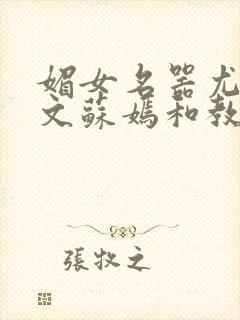 媚女名器尤
文蘇媽和教
張牧之